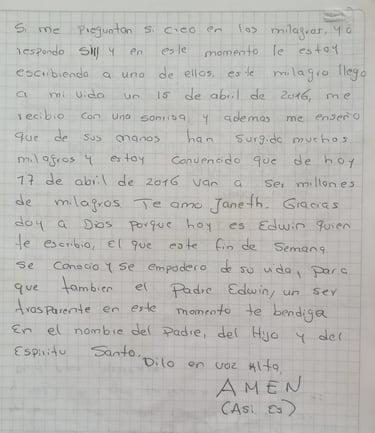 Si me preguntan si creo en los milagros, yo
respondo SIII y en este momento le estoy
escribiendo a uno de ellos, este milagro llego
a mi vida un 15 de abril de 2016, me
recibio con una sonrisa y ademas me enseño
que de sus manos han surgido muchos
milagros y estoy convencido que de hoy
17 de abril de 2016 van a ser millones
de milagros Te amo Janeth. Gracias
doy a Dios porque hoy es Edwin quien
te escribio, El que este fin de semana
se conocio y se empodero de su vida, para
que tambien el Padre Edwin, un ser
trasparente en este momento te bendiga
En el nombre del Padre, del Hijo y del
Espiritu Santo.
Dilo en voz Alta,
AMEN
(Asi Es)